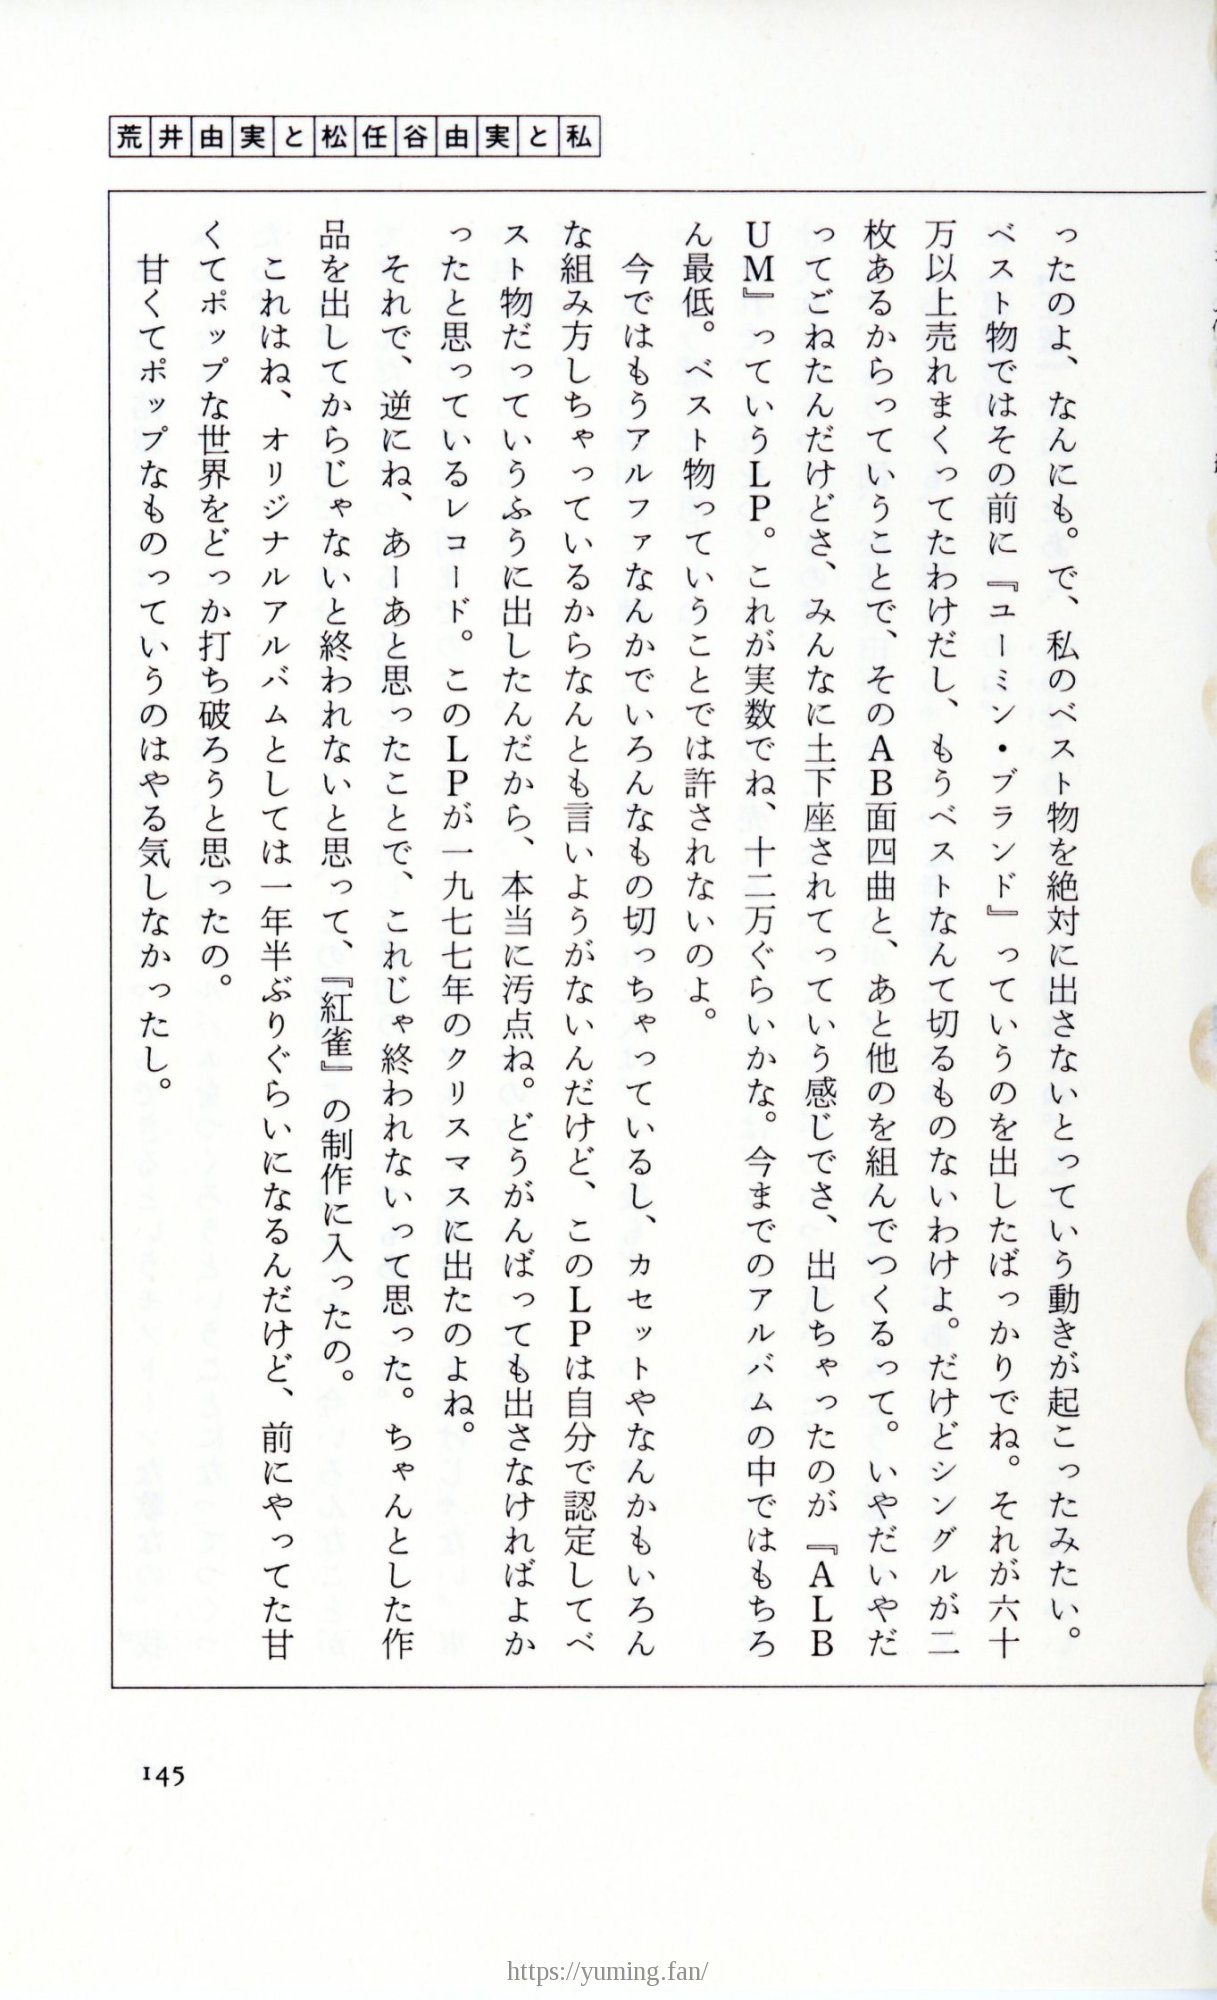 荒井由実と松任谷由実と私
ったのよ、なんにも。で、私のベスト物を絶対に出さないとっていう動きが起こったみたい。
ベスト物ではその前に『ユーミン・ブランド』っていうのを出したばっかりでね。それが六十
万以上売れまくってたわけだし、もうベストなんて切るものないわけよ。だけどシングルが二
枚あるからっていうことで、そのAB面四曲と、あと他のを組んでつくるって。いやだいやだ
ってごねたんだけどさ、みんなに土下座されてっていう感じでさ、出しちゃったのが『ALB
UM』っていうLP。これが実数でね、十二万ぐらいかな。今までのアルバムの中ではもちろ
ん最低。ベスト物っていうことでは許されないのよ。
今ではもうアルファなんかでいろんなもの切っちゃっているし、カセットやなんかもいろん
な組み方しちゃっているからなんとも言いようがないんだけど、このLPは自分で認定してベ
スト物だっていうふうに出したんだから、本当に汚点ね。どうがんばっても出さなければよか
ったと思っているレコード。このLPが一九七七年のクリスマスに出たのよね。
それで、逆にね、あーあと思ったことで、これじゃ終われないって思った。ちゃんとした作
品を出してからじゃないと終われないと思って、『紅雀』の制作に入ったの。
これはね、オリジナルアルバムとしては一年半ぶりぐらいになるんだけど、前にやってた甘
くてポップな世界をどっか打ち破ろうと思ったの。
甘くてポップなものっていうのはやる気しなかったし。
145
https://yuming.fan/